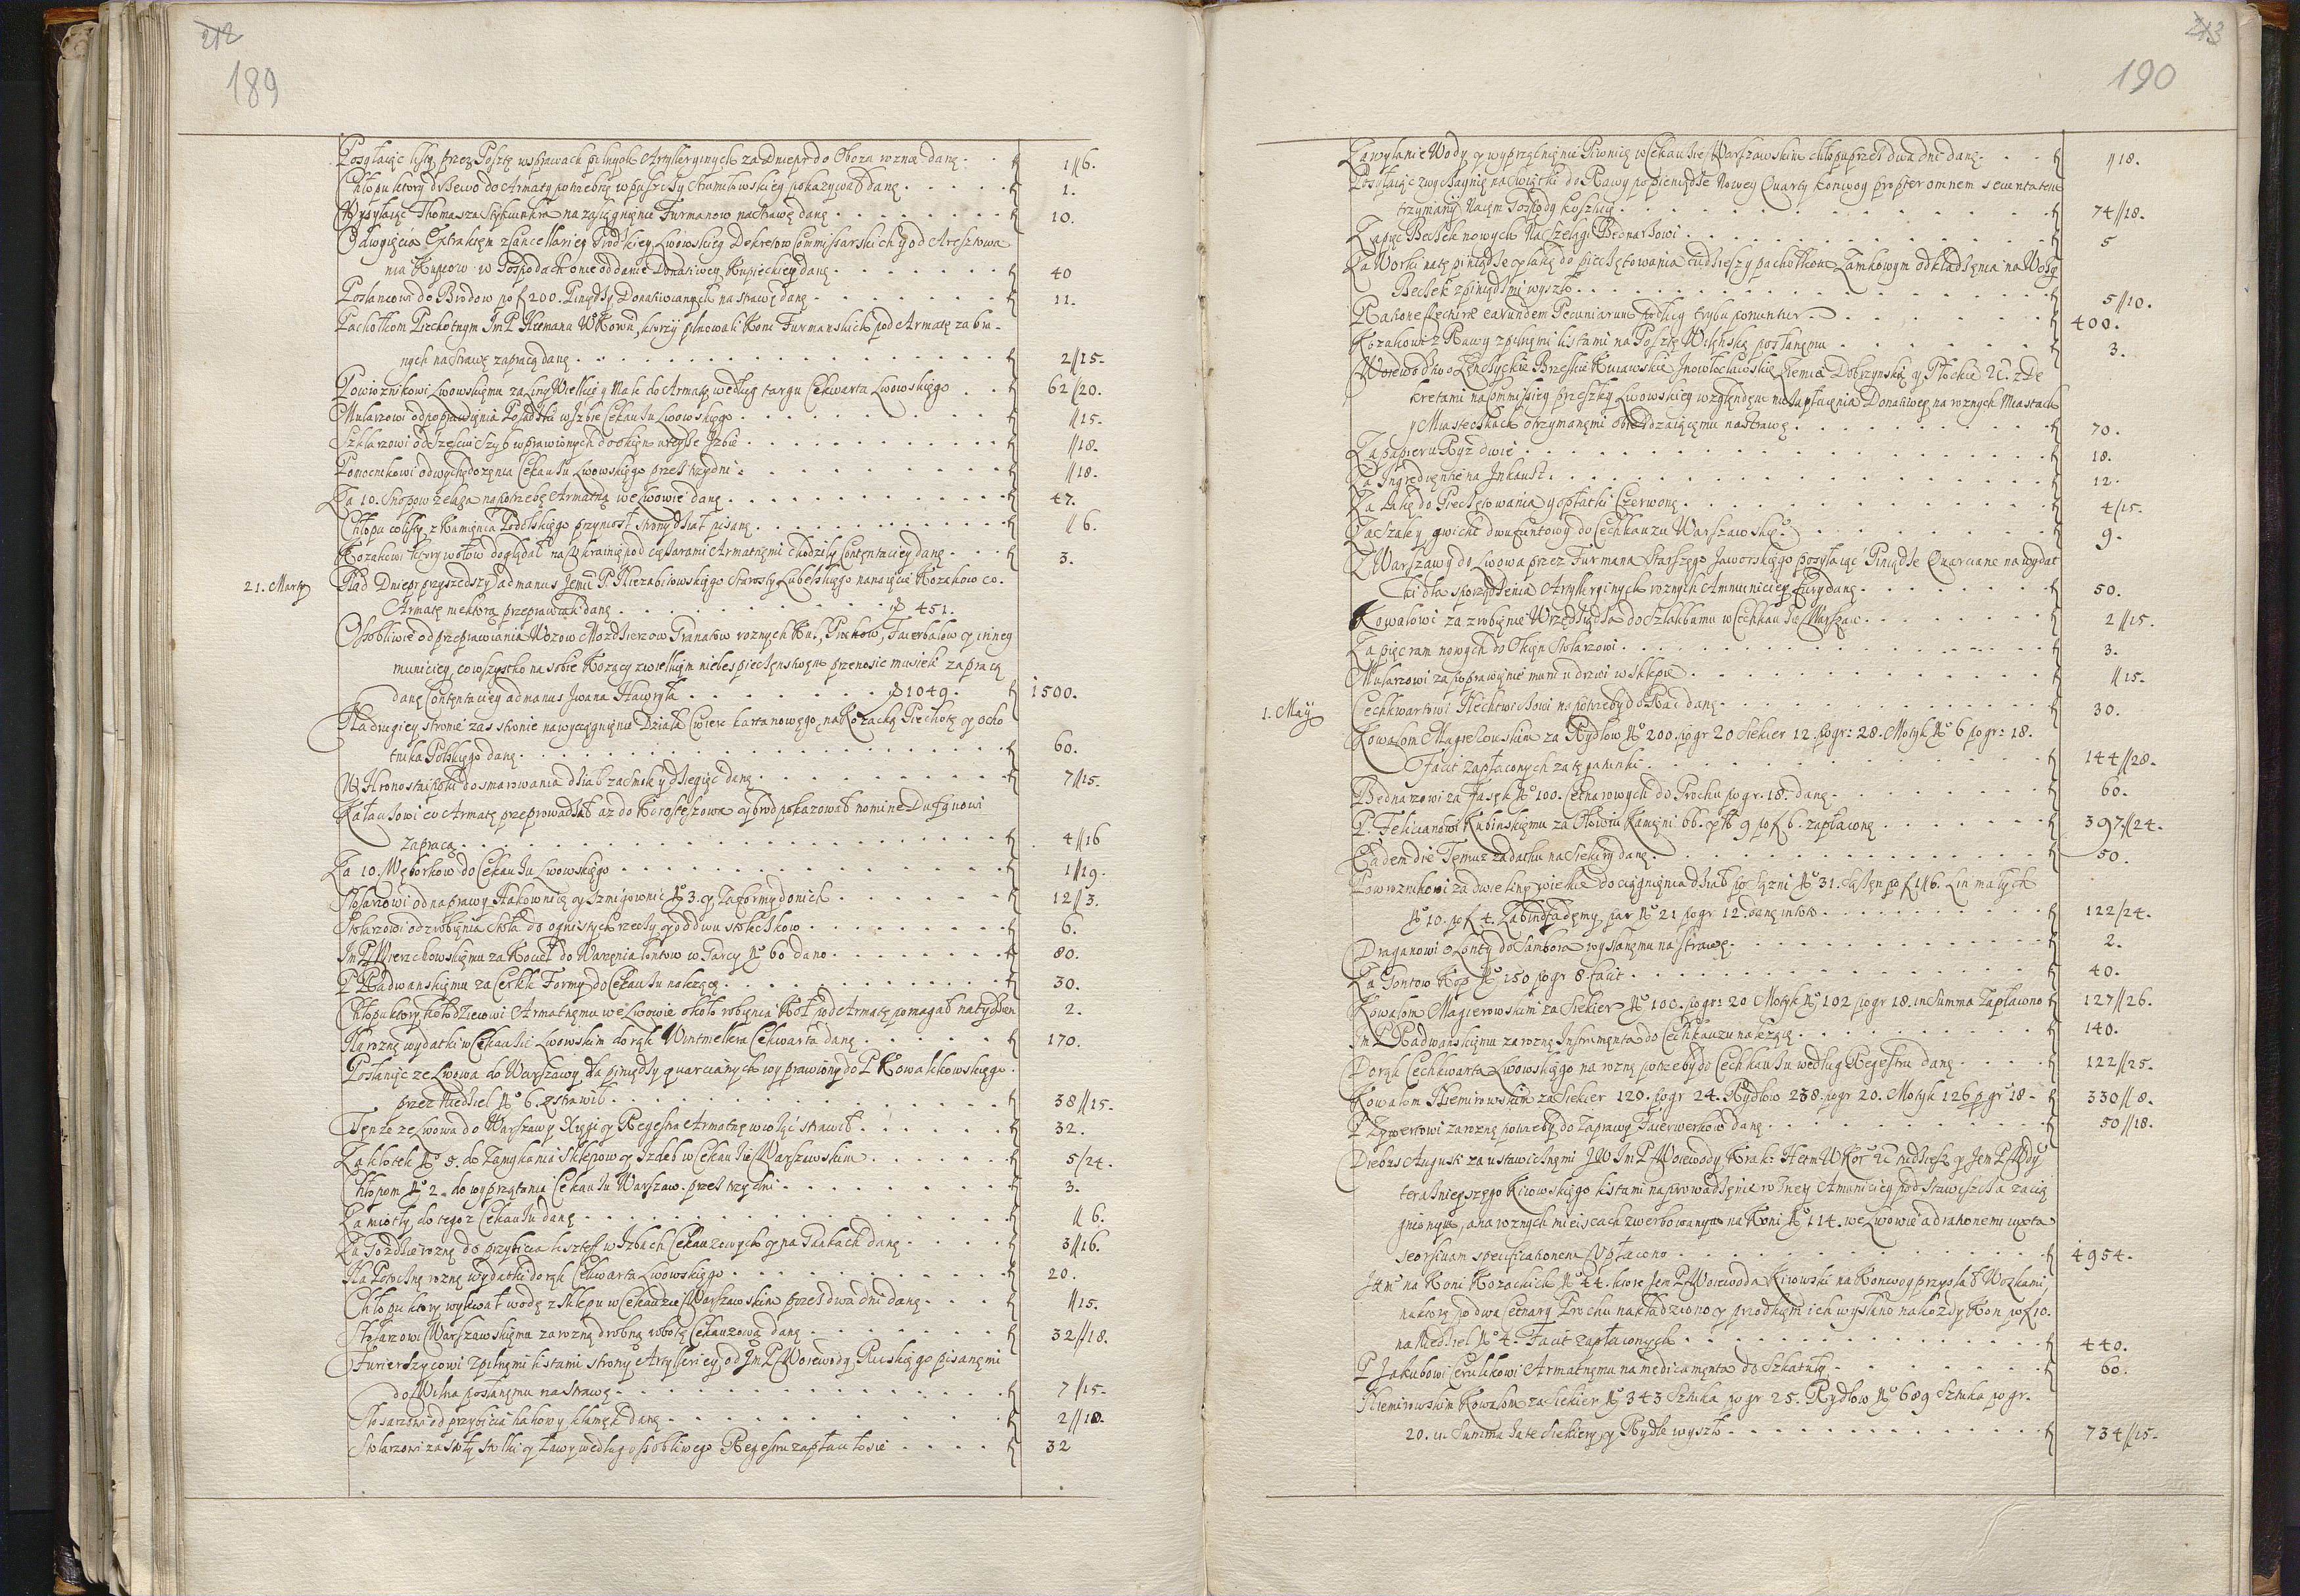 212
189
Posyłaiąc listy przez Posztę w sprawach pilnych Artylleryinych za Dniepr do Obozu rozne danę f 1//6.
Chłopu ktory drzewo do Armaty potrzebnę w puszczy pokazywał danę f 1.
Wysyłaiąc Thomasza na zasiągnięnie Furmanow na strawę danę f 10.
Od wyięcia Extraktęm z Cancellariey Grodskiey Lwowskiey Dekretow Commissarskich y od Aresztowa
nia Kupcow w Gospodach o nie oddanie Donatiwey Kupieckiey danę f 40
Posłancowi do Brodow po f 200. Pinędzy Donatiwianych na strawę danę f 11.
Pachołkom Piechotnym Im P Hetmana W Koro, ktorzy pilnowali Koni Furmanskich pod Armatę zabra-
nych na strawę za pracą danę f 2//15-
Powroznikowi Lwowskięmu za Liny Wielkie y Małe do Armaty według targu Cekwarta Lwowskięgo f 62/20.
Mularzowi od poprawięnia Posadzki w Izbie Cekauzu Lwowskięgo f //15-
Szklarzowi od szesciu szyb wprawionych do okięn w teyże Izbie f //18-
Pomocnikowi od wychędożęnia Cekauzu Lwowskięgo przez trzy dni f //18-
Za 10. Snopow żelaza na potrzebę Armatną we Lwowie danę f 47.
Chłopu co listy z Kamięnca Podolskięgo przyniosł strony Dział pisanę f //6.
Kozakowi ktory wołow doglądał na Ukrainię pod cięzarami Armatnęmi chodzily Contentaciey danę f 3.
21. Marty Nad Dniepr przyszedszy ad manus Jemu P. Niezabitowskięgo Starosty Lubelskięgo na naięcie Kozakow co.
Armatę niektorą przeprawiali danę f 451.
Osobliwie od przeprawiania Wozow Mozdzierzow Granatow roznych Kul, Prochow, Faierbalow y inney
municiey, co wszystko na sobie Kozacy z wielkięm niebespieczęnstwęm przenosic musieli za pracą
danę Contentaciey ad manus Iwana Hawryła f 1049. f 1500.
Na drugiey stronie zas stronie na wyciągnięnie Działa Cwierc kartanowęgo, na Kozacką Piechotę y ocho
tnika Polskięgo danę f 60.
W Hronostaipolu do smarowania dział za smolę y dziegięć danę f 7//15-
Kałauzowi co Armatę przeprowadzał az do Korostęszowa y brod pokazował nomine
za pracą f 4//16
Za 10. Węborkow do Cekauzu Lwowskięgo f 1//19.
Slosarzowi od naprawy Hakownicę y Szmigownic No 3. y za formy do nich f 12//3.
Stolarzowi od zrobięnia stołu do ognistych rzeczy y od dwu stołeczkow f 6.
Im P Wierzchowskięmu za Kocieł do Warzęnia lontow w Tarcy No 60 dano f 80.
P Radwanskięmu za Cerkle Formy do Cekauzu nalezące f 30.
Chłopu ktory kołodzieiowi Armatnęmu we Lwowie około robięnia Koł pod Armatę pomagał na tydzien 2.
Na roznę wydatki w Cekauzie Lwowskim do rąk Wintmellera Cekwarta danę f 170.
Posłanięc ze Lwowa do Warszawy dla pinędzy quarcianych wyprawiony do P Kowalkowskięgo
przez Niedziel No 6. strawił f 38//15-
Tęnze ze Lwowa do Warszawy Xięgi y Regestra Armatnę wioząć strawił f 32.
Za kłotek No 5. do Zamykania Sklepow y Izdeb w Cekauzie Warszawskim f 5/24.
Chłopom No 2. do wyprzątania Cekauzu Warszaw. przez trzy dni f 3.
Za miotły do tegoz Cekauzu danę f //6.
Za Gozdzie roznę do przybicia w Izbach Cekauzowych y na Gankach danę f 3//16.
Na Potocznę roznę wydatki do rąk Cekwarta Lwowskięgo f 20.
Chłopu ktory wylewał wodę z Sklepu w Cekauzie Warszawskim przez dwa dni danę f //15.
Stolarzowi Warszawskięmu za roznę drobną robotę Cekauzową danę f 32//18.
Furierszycowi z pilnęmi listami strony Artylleriey od Im P Woiewody Ruskięgo pisanęmi
do Wilna posłanęmu na strawę f 7//15-
Slosarzowi od przybicia hakow y klamęk danę f 2//18.
Stolarzowi za stoły stolki y ławy według osobliwego Regestru zapłaciłosie f 32
213
190
Za wylanie Wody y wyprzątnięnie Piwnicę w Cekauzie Warszawskim chłopu przez dwa dni danę f //18.
Posyłaiąc zwyczaynię na Swiątki do Rawy po pieniądze Nowey Quarty konwoy propter omnem securitatem
trzymany Naięm Gospody kosztuię f 74//18-
Za pięc Beczek nowych Na szelągi Bednarzowi f 5
Za Worki na tę piniądze y Łakę do pieczętowania tudzieszy pachołkom Zamkowym od kładzięnia na Wozy
Beczek z piniądzmi wyszło f 5//10.
Ratione Lechirae earundem Pecuniarum solitey trybu ponuntur f 400.
Kozakowi z Rawy z pilnęmi listami na Posztę Wilęnską posłanęmu f 3.
Woiewodztwo Lenczyckie Brzeskie Kuiawskie Inowłocławskie Ziemia Dobrzynska y Płockie &c. z De
kretami na Commissiey przeszłey Lwowskiey względęm niezapłacęnia Donatiwey na roznych Miastach
y Miasteczkach otrzymanęmi obieżdzaiącęmu na strawę f 70.
Za papieru Ryz dwie f 18.
Za Ingredięntie na Inkaust f 12.
Za Lakę do Pieczętowania y opłatki Czerwonę f 4/15-
Za szalę y gwicht dwufuntowy do Cechhauzu Warszawskie f 9.
Z Warszawy do Lwowa przez Furmana Starszęgo Jaworskięgo posyłaiąc Piniądze Quarciane na wydat
ki dla sporządzęnia Artylleryinych roznych Ammunicięy fury danę f 50.
Kowalowi za zrobięnie Wrzędziądza do Szlakbamu w Cechhauzie Warszaw f 2//15.
Za pięc ram nowych do Okięn Stolarzowi f 3.
Mularzowi za poprawięnie muru u drzwi w Sklepie f //15-
1. May Cechkwartowi na potrzeby do Rad danę f 30.
Kowalom Magierowskim za Rydlow No 200. po gr 20 Siekier 12. po gr: 28. Motyk No 6 po gr: 18.
Facit zapłaconych za tę gatunki f 144//28-
Bednarzowi za Fasęk No 100. Cetnarowych do Prochu po gr. 18. danę f 60.
P. Felicianowi Kubinskięmu za Ołowiu Kamięni 66. y lb 9 po f 6. zapłaconę f 397//24-
Eadem die Tęmuz zadatku na Siekiry danę f 50.
Powroznikowi za dwie liny wielkie do ciągnięnia dział po Sązni No 31. Sążęn po f 1//6. Lin małych
No 10. po f 4. Zabindfadęmy par No 21 po gr 12. danę in toto f 122/24-
Draganowi o Lonty do Sambora wysłanęmu na strawę f 2.
Za Gontow Kop No 150 po gr 8. facit f 40.
Kowalom Magierowskim za Siekier No 100. po gr: 20 Motyk No 102 po gr 18. in Summa Zapłacono f 127//26.
Im P Radwanskięmu za roznę Instrumęnta do Cechhauzu nalezęcę f 140.
Do rąk Cechkwarta Lwowskięgo na roznę potrzeby do Cechhauzu według Regestru danę f 122//25-
Kowalom Niemirowskim za Siekier 120. po gr 24. Rydlow 238. po gr 20. Motyk 126 p gr 18- f 330//8.
P Zywertowi za roznę potrzeby do Zaprawy Faierwerkow danę f 50//18.
Diebus Augusti za ustawicznęmi JW Im P Woiewody Krak: Hetm W Kor &c tudziesz y Jem P Wdy
teraznieyszęgo Kiiowskięgo listami na prowadzęnie roznęy Amuniciey pod Stawiszcza zacią
gnionym, a na roznych mieiscach zwerbowanym na Koni No 114. we Lwowie ad rationem iuxta
seorsivam specificationem Zapłacono f 4954-
Itm na Koni Kozackich No 44. ktore Jem P Woiewoda Kiiowski na Konwoy przysłał Wozkami
na ktorę po dwa Cetnary Prochu nakładziono y przodkęm ich wysłano na kozdy Kon po f 10.
na Niedziel No 4. Facit zapłaconych f 440.
P Jakubowi Cerulikowi Armatnęmu na medicamęnta do Szkatuły f 60.
Niemirowskim Kowalom za Siekier No 343 Sztuka po gr 25. Rydlow No 689 Sztuka po gr.
20. u. Summa za te Siekiery y Rydle wyszło f 734//15-